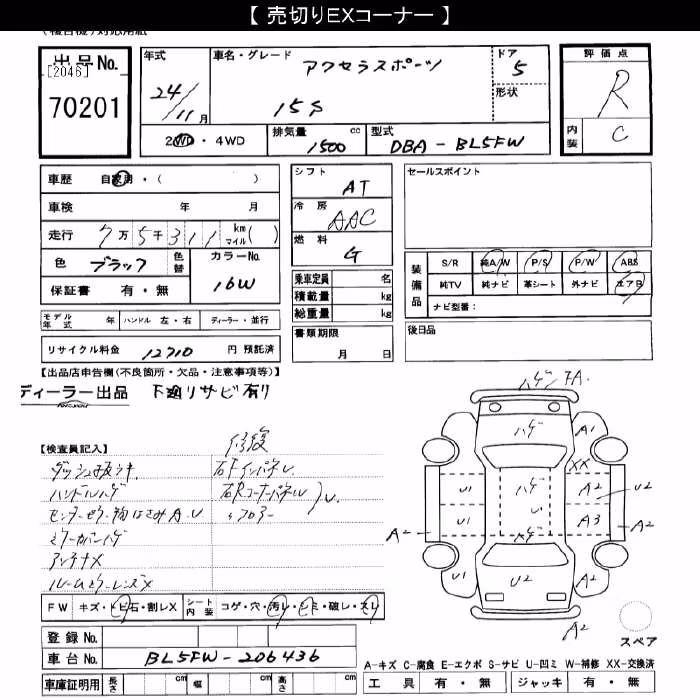 【 売切りEXコーナー 】
出品No.
[2046]
70201
年式
24/11月
車名・グレード
アクセラスポーツ
15S
ドア
5
形状
評価点
R
内装
C
2WD・4WD
排気量
1500 cc
型式
DBA-BL5FW
車歴 自家用・( )
車検 年 月
走行 7万5千311 km マイル( )
色 ブラック 色替
カラーNo.
16W
保証書 有・無
シフト
AT
冷房
AAC
燃料
G
乗車定員 名
積載量 kg
総重量 kg
セールスポイント
装備品
S/R 純A/W P/S P/W ABS
純TV 純ナビ 革シート 外ナビ エアB
ナビ型番：
モデル年式 年 ハンドル 左・右 ディーラー・並行
リサイクル料金 12710 円 預託済
書類期限
月 日
後日品
【出品店申告欄(不良箇所・欠品・注意事項等)】
ディーラー出品 下廻リサビ有り
【検査員記入】
修復
ハンドルハゲ
アンテナX
ルームミラーレンズX
FW キズ・トビ石・割レX シート内装 コゲ・穴・汚レ・シミ・破レ・スレ
ハゲ A
ハゲ A1
XX
U1 ハゲ A2 U2
A2 U1 U A3 A2
ハゲ
U1 U2 A2
A2
スペア
登録No.
車台No. BL5FW-206436
A-キズ C-腐食 E-エクボ S-サビ U-凹ミ W-補修 XX-交換済
車庫証明用 長さ cm 幅 cm 高さ cm
工具 有・無 ジャッキ 有・無